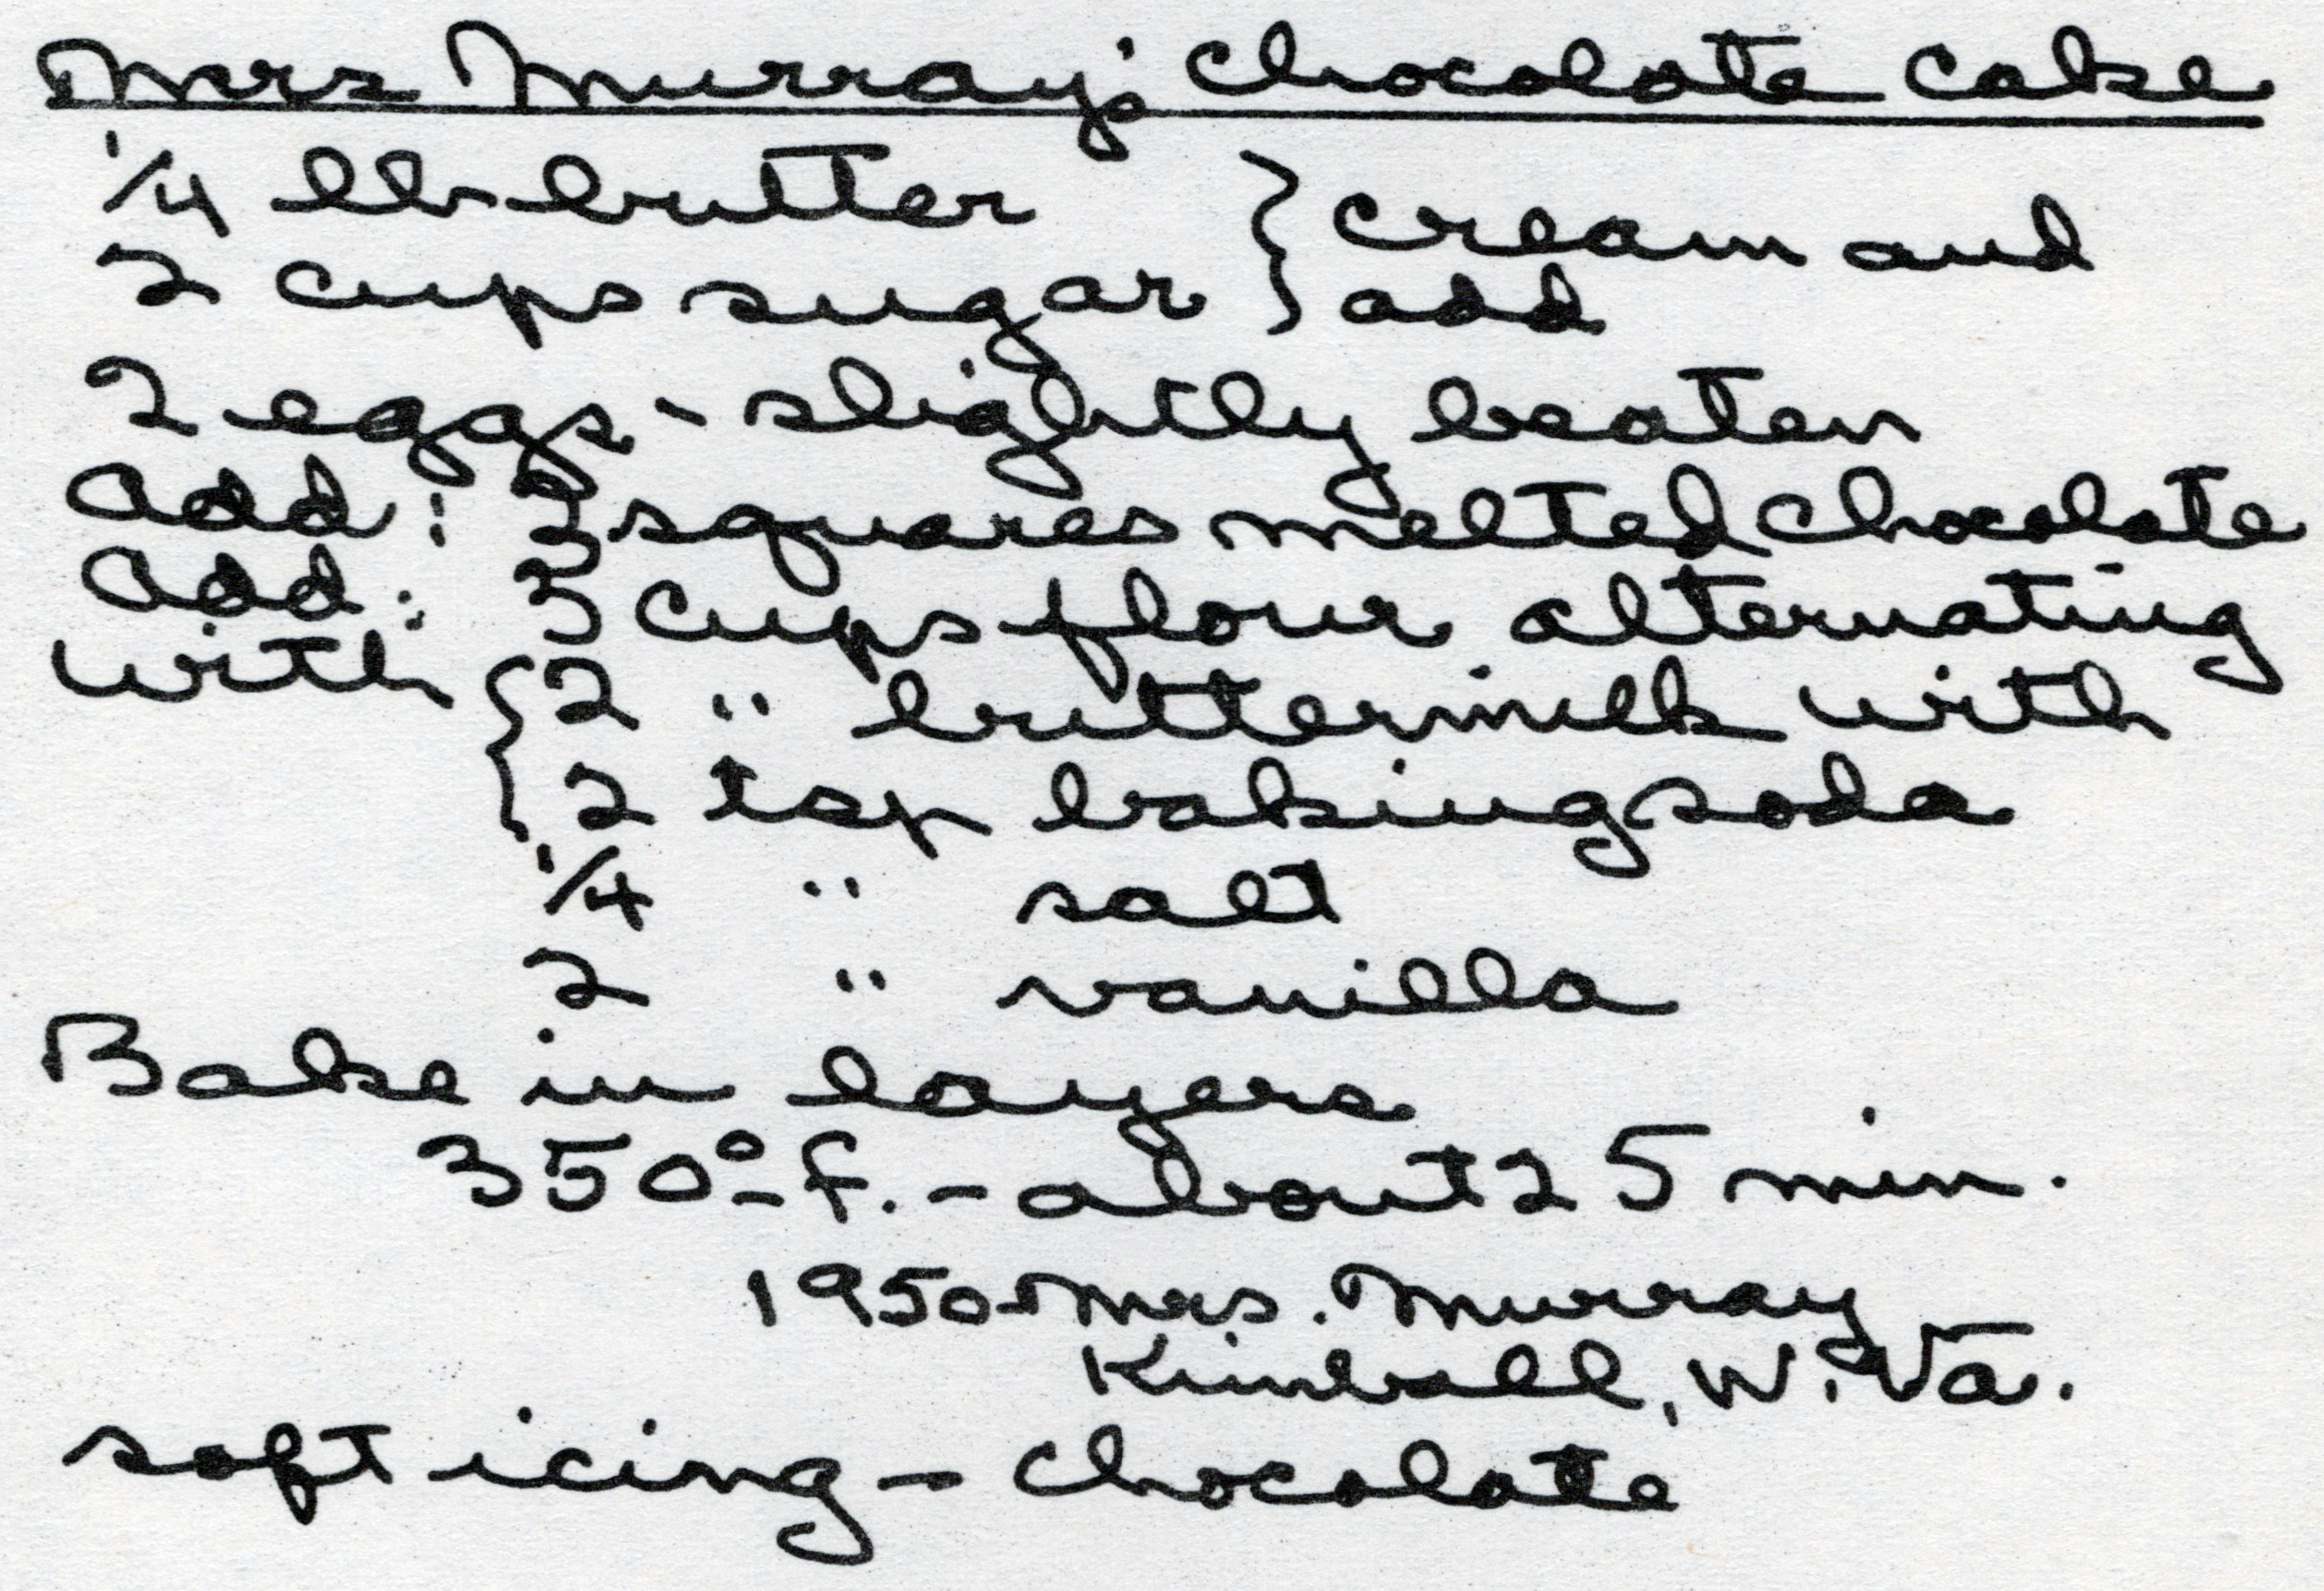 Mrs Murray's Chocolate Cake
1/4 lb butter } cream and
2 cups sugar } add
2 eggs - slightly beaten
Add: squares melted chocolate
Add: 3 cups flour alternating
with { 2 " buttermilk with
{ 2 tsp baking soda
1/4 " salt
2 " vanilla
Bake in layers
350° f. - about 25 min.
1950 - Mrs. Murray
Kimball, W. Va.
soft icing - chocolate